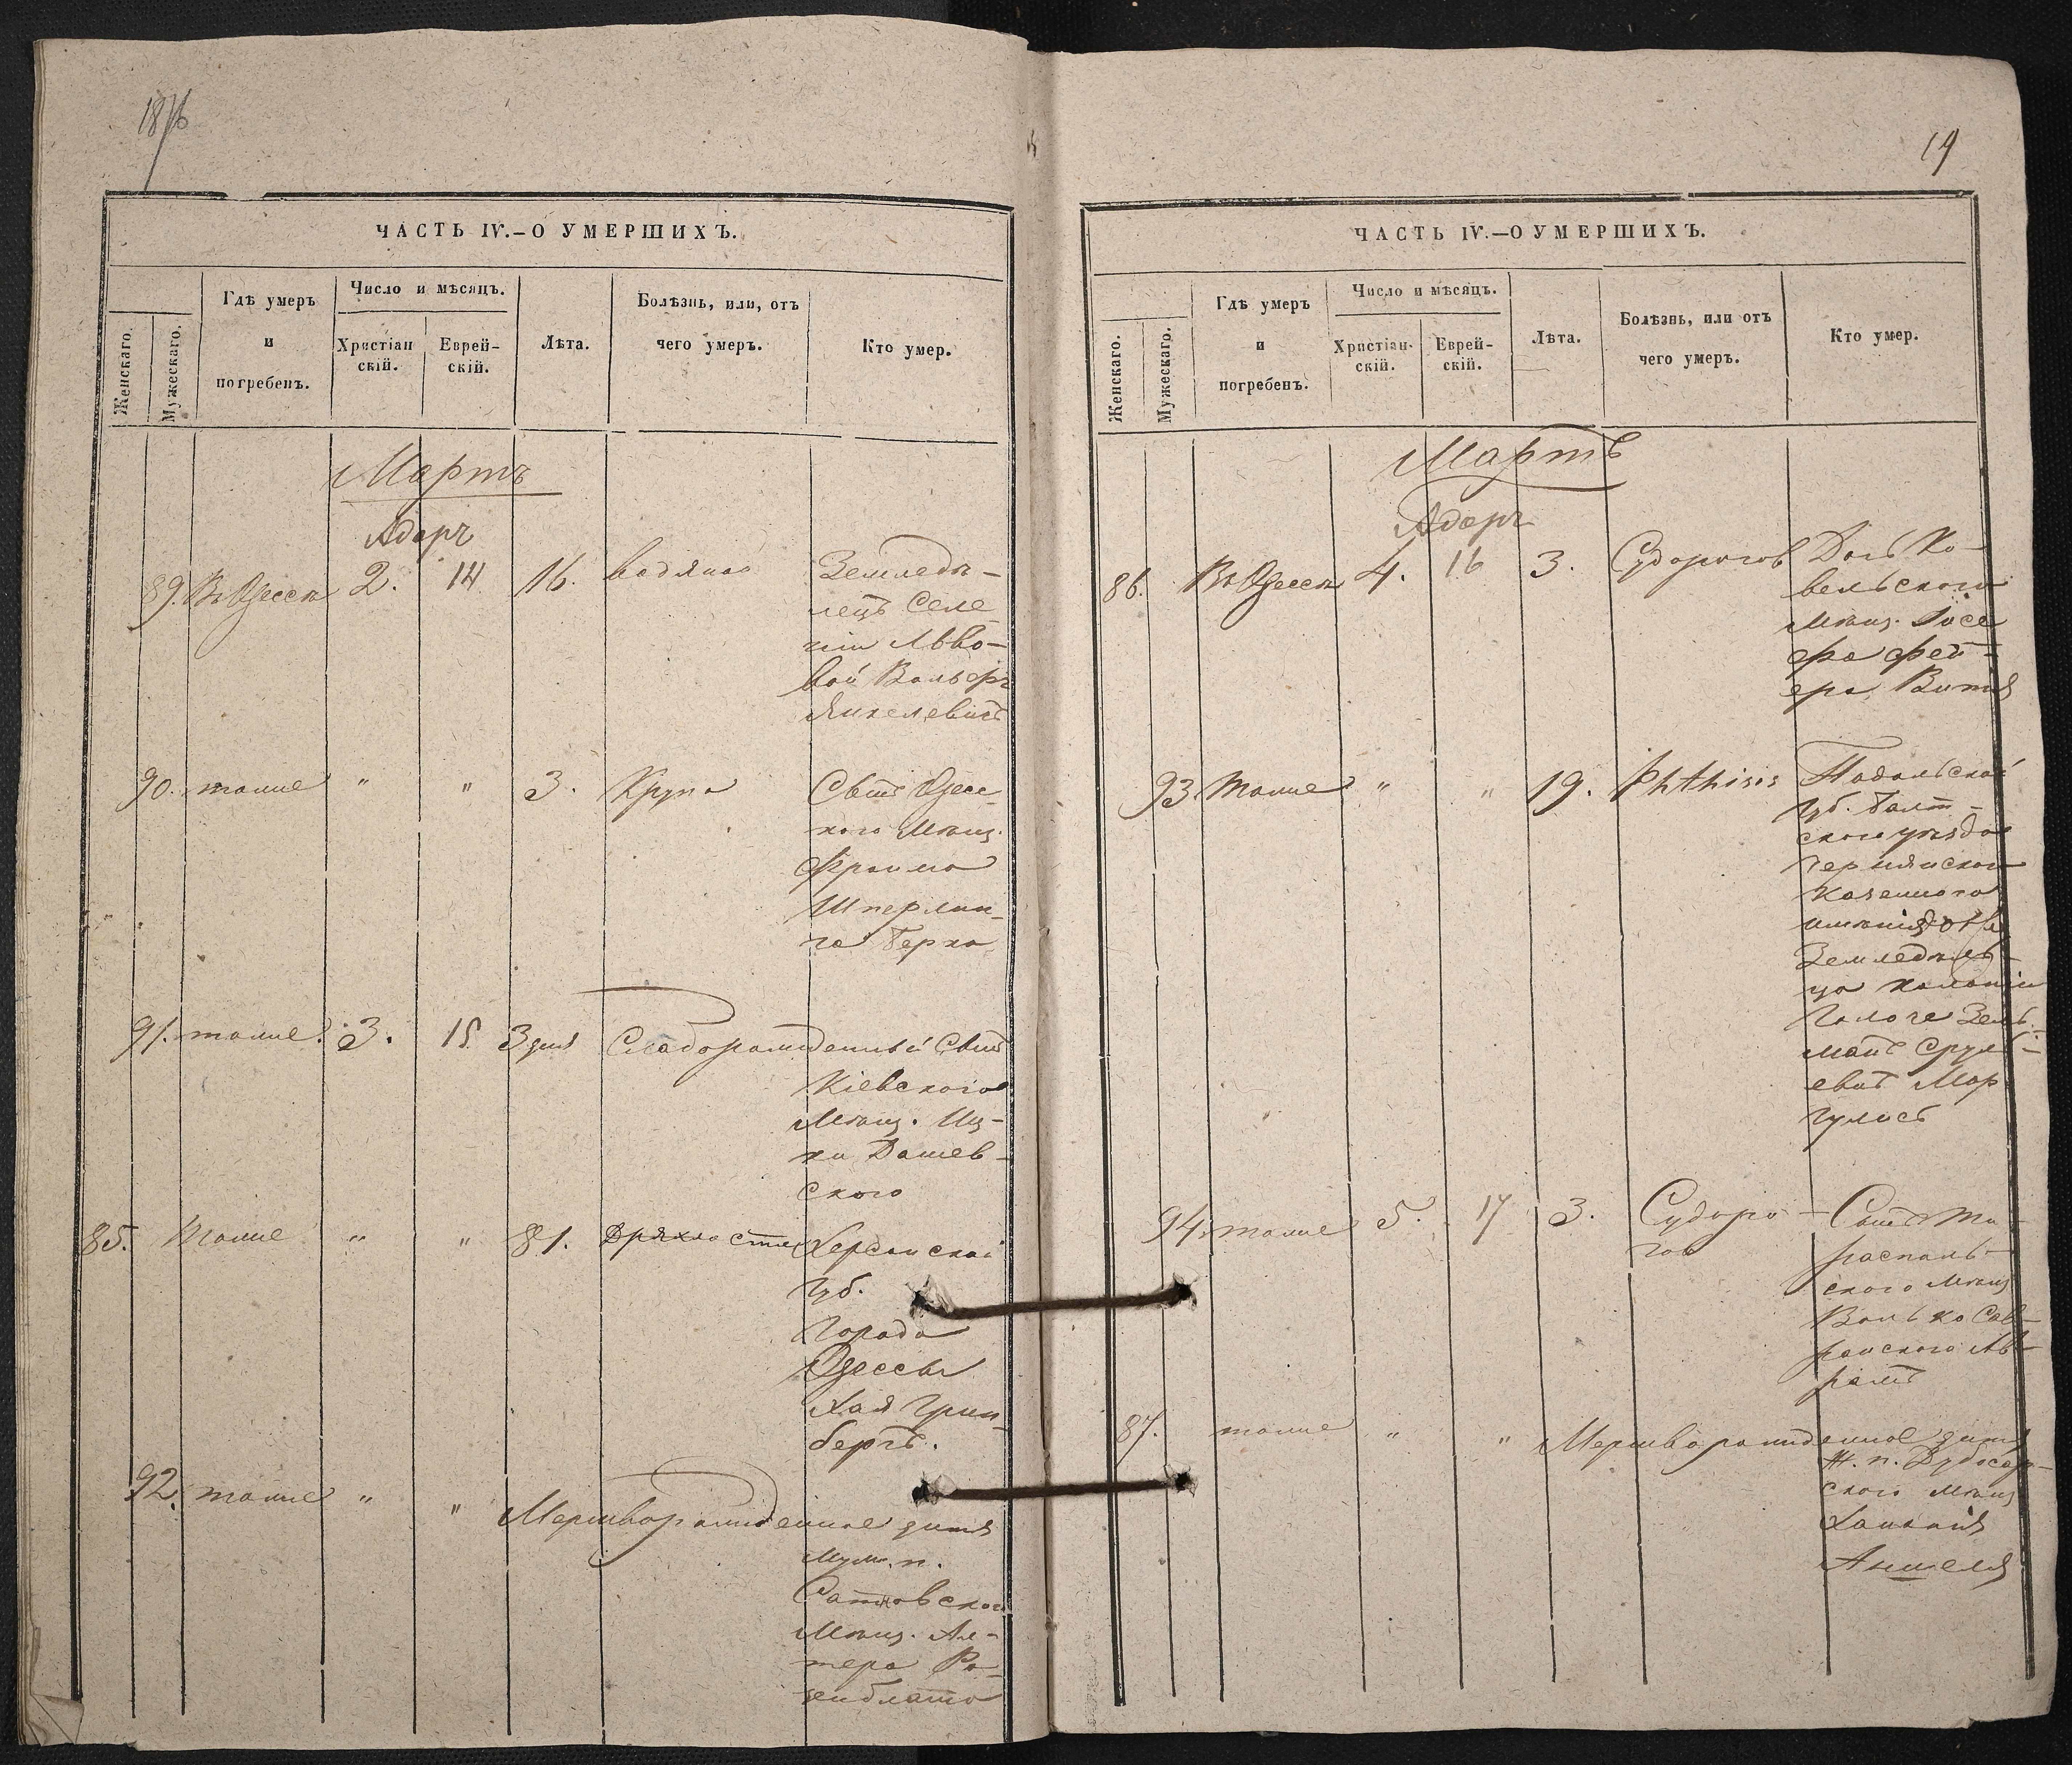 1876
ЧАСТЬ IV.–О УМЕРШИХЪ.
Женскаго.
Мужескаго.
Гдѣ умеръ
и
погребенъ.
Число и мѣсяцъ.
Христіан
скій.
Еврей-
скій.
Лѣта.
Болѣзнь, или, отъ
чего умеръ.
Кто умер.
Мартъ
Адаръ
89. Въ Одессѣ 2. 14 16. водяная Земледѣ-
лецъ Селе
ніи Львo-
вой Вольфъ
Янкелевичъ
90. тоже " " 3. Крупа Сынъ Одес-
кого Мѣщ.
Фроима
Шперлин-
га Берко
91. тоже. 3. 15 3 дня Слаборожденный Сынъ
Кіевского
Мѣщ. Иц-
ки Дашев-
ского
85. тоже " " 81. Дряхлости Херсонской
Губ.
Города
Одессы
Хая Грин-
бергъ.
92. тоже " " Мертворожденное дитя
Муж. п.
Сатановского
Мѣщ. Аль-
тера Ро-
зенблата
19
ЧАСТЬ IV.—О УМЕРШИХЪ.
Женскаго.
Мужескаго.
Гдѣ умеръ
и
погребенъ.
Число и мѣсяцъ.
Христіан-
скій.
Еврей-
скій.
Лѣта.
Болѣзнь, или отъ
чего умеръ.
Кто умер.
Мартъ
Адаръ
86. Въ Одессѣ 4. 16 3. Судорогов Дочь Ко-
вельского
Мѣщ. Іосе
фа Фей-
ера
93. тоже " " 19. Phthisis Подольской
Губ. Балт-
ского уѣзда
казенного
имѣнія
Земледѣль-
ца колоніи
Зель-
манъ Срул-
евичъ Мар
гулисъ
94. тоже 5. 17 3. Судоро-
гов
Сынъ Ти-
распаль-
ского Мѣщ
Волько Сав-
ранского Аб-
рамъ
87. тоже " " Мертворожденное дитя
Ж. п. Дубосар-
ского Мѣщ
Хананія
Аншеля